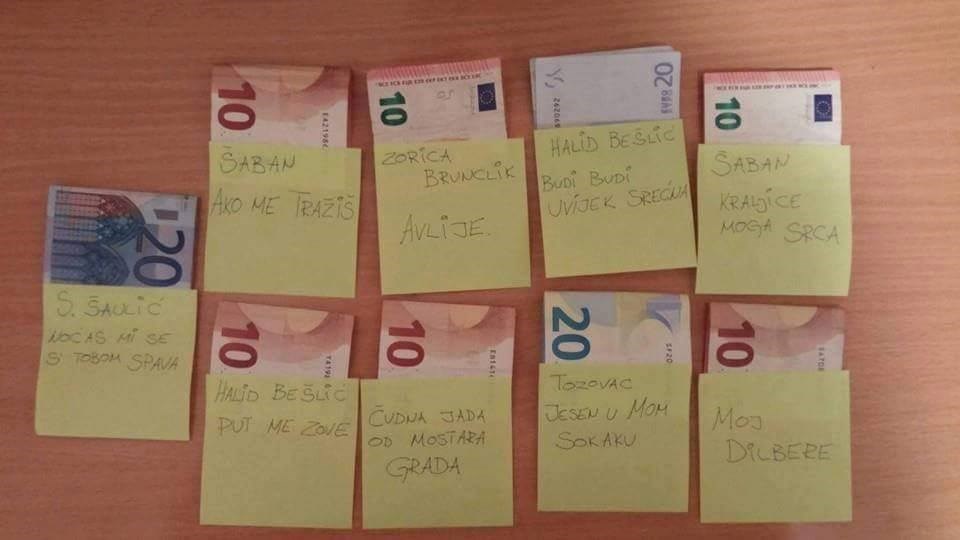 10
EA2198
ŠABAN
AKO ME TRAŽIŠ
10
ZORICA
BRUNCLIK
AVLIJE.
20
HALID BEŠLIĆ
BUDI BUDI
UVIJEK SREĆNA
10
ŠABAN
KRALJICE
MOGA SRCA
20
S. ŠAULIĆ
NOĆAS MI SE
S' TOBOM SPAVA
10
HALID BEŠLIĆ
PUT ME ZOVE
10
ČUDNA JADA
OD MOSTARA
GRADA
20
SF20
TOZOVAC
JESEN U MOM
SOKAKU
10
MOJ
DILBERE